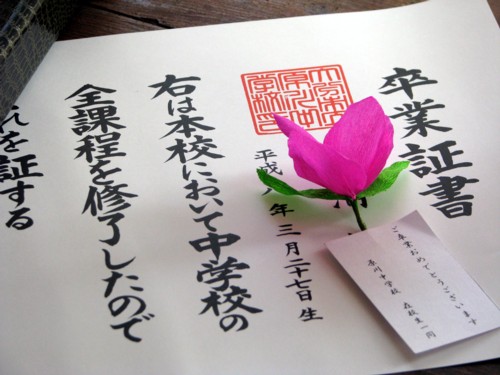 卒業証書
平成
年三月二十七日生
右は本校において中学校の
全課程を修了したので
れを証する
ご卒業おめでとうございます
中学校 在校生一同